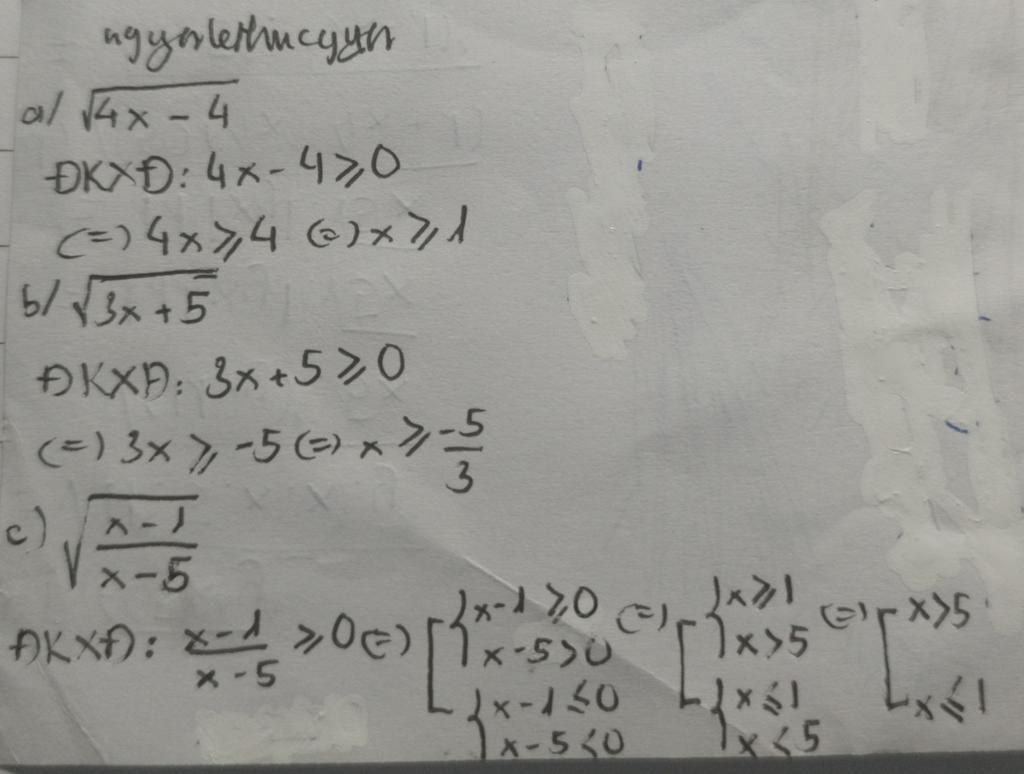 nguyenlethucuyen
a/ √(4x - 4)
ĐKXĐ: 4x - 4 ⩾ 0
(=) 4x ⩾ 4 (=) x ⩾ 1
b/ √(3x + 5)
ĐKXĐ: 3x + 5 ⩾ 0
(=) 3x ⩾ -5 (=) x ⩾ -5/3
c) √((x - 1)/(x - 5))
ĐKXĐ: (x - 1)/(x - 5) ⩾ 0 (=) [ { x - 1 ⩾ 0 ; x - 5 > 0 ; { x - 1 ⩽ 0 ; x - 5 < 0 (=) [ { x ⩾ 1 ; x > 5 ; { x ⩽ 1 ; x < 5 (=) [ x > 5 ; x ⩽ 1